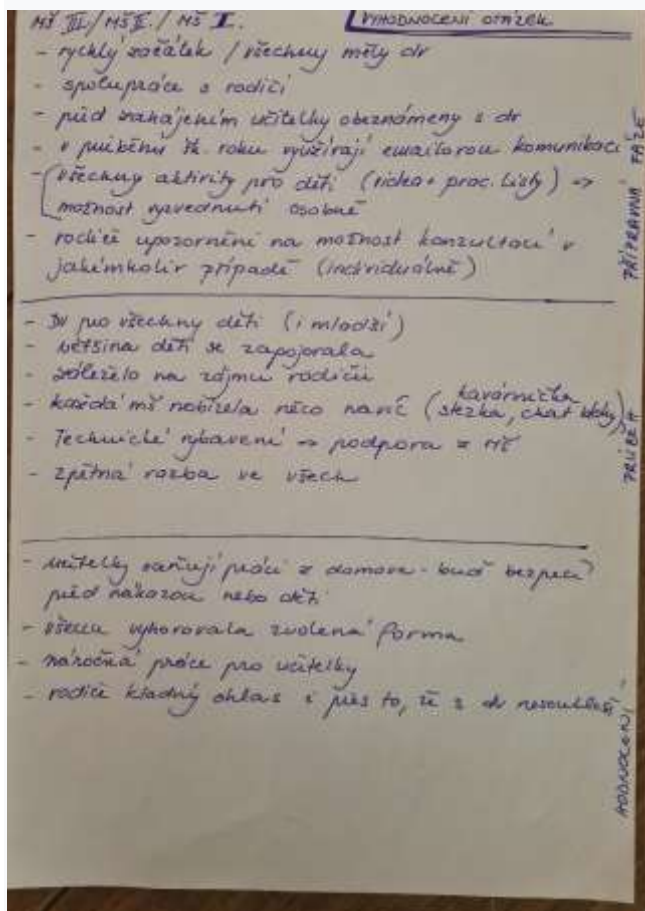 MŠ III./MŠ II./MŠ I.
VYHODNOCENÍ OTÁZEK
- rychlý začátek / všechny měly dv
- spolupráce s rodiči
- před zahájením učitelky obeznámeny s dv
- v průběhu šk. roku využívají emailovou komunikaci
- všechny aktivity pro děti (videa + prac. listy) →
možnost vyzvednutí osobně
- rodiče upozorněni na možnost konzultací v
jakémkoliv případě (individuálně)
PŘÍPRAVNÁ FÁZE
- DV pro všechny děti (i mladší)
- většina dětí se zapojovala
- záleželo na zájmu rodičů
kavárnička
- každá mš nabízela něco navíc (stezka, chat)
- Technické vybavení → podpora z MŠ
- zpětná vazba ve všech
PRŮBĚH
- učitelky práci z domova - buď bezpečí
před nákazou nebo děti
- všem vyhovovala zvolená forma
- náročná práce pro učitelky
- rodiče kladný ohlas i přes to, že s dv nesouhlasí
HODNOCENÍ